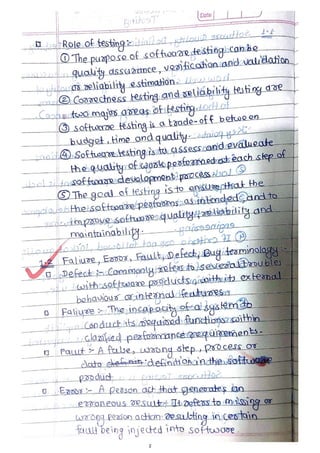 Date
1-1
Role of testing :-
① The purpose of software testing can be
quality assurance, verification and validation
or reliability estimation.
② Correctness testing and reliability testing are
two major areas of testing
③ software testing is a trade-off between
budget, time and quality.
④ Software testing is to assess and evaluate
the quality of work performed at each step of
software development process
⑤ The goal of testing is to ensure that the
the software performs as intended, and to
improve software quality, reliability and
maintainability.
1.2 Faliure, Error, Fault, Defect, Bug terminology :-
Defect :- Commonly refers to several troubles
with software products, with its external
behaviour or internal features.
Faliure :- The incapacity of a system to
conduct its required functions within
clarified performance requirements.
Fault :- A false, wrong step, process or
data definition in the software
product
Error :- A person act that generates an
erroneous result. It refers to missing or
wrong person action resulting in certain
fault being injected into software
2